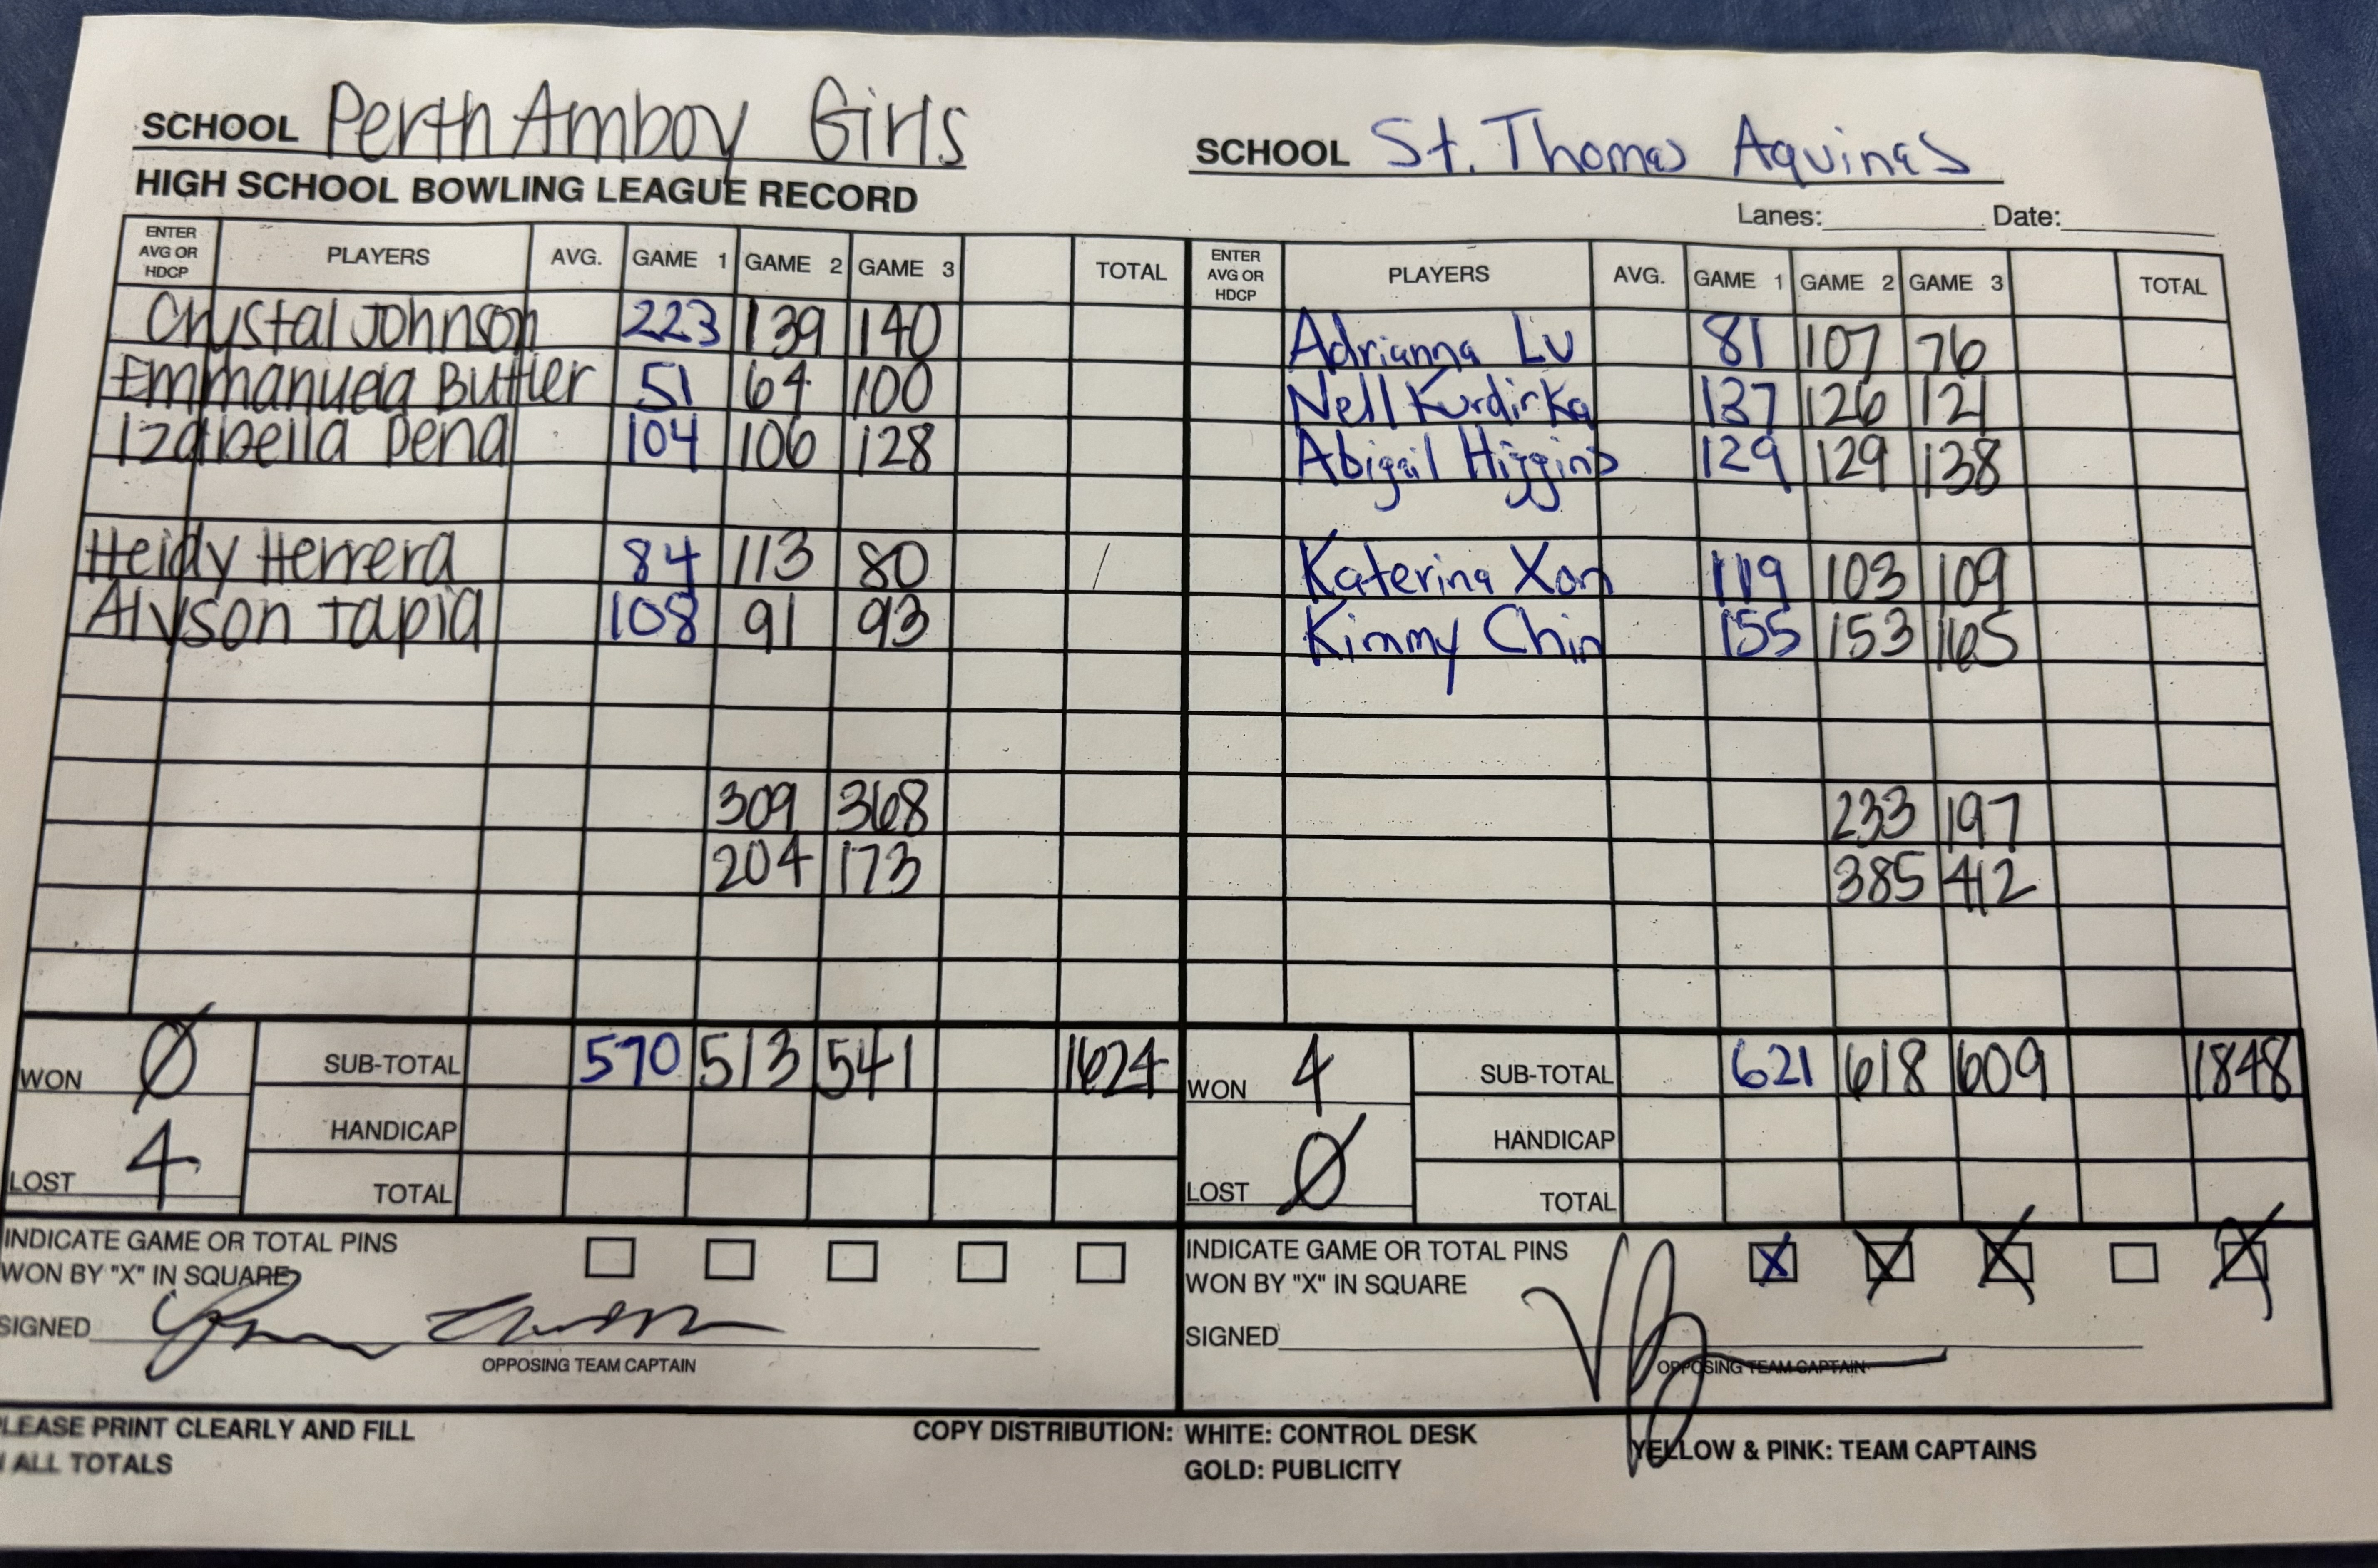 SCHOOL Perth Amboy Girls
SCHOOL St. Thomas Aquinas
HIGH SCHOOL BOWLING LEAGUE RECORD
Lanes: Date:
ENTER AVG OR HDCP PLAYERS AVG. GAME 1 GAME 2 GAME 3 TOTAL ENTER AVG OR HDCP PLAYERS AVG. GAME 1 GAME 2 GAME 3 TOTAL
Crystal Johnson 223 139 140 Adrianna Lu 81 107 76
Emmanuela Butler 51 64 100 Nell Kurdirka 137 126 121
Izabella Pena 104 106 128 Abigail Higgins 129 129 138
Heidy Herrera 84 113 80 / Katerina Xon 119 103 109
Alyson Tapia 108 91 93 Kimmy Chin 155 153 165
309 368 233 197
204 173 385 412
WON 0 SUB-TOTAL 570 513 541 1624 WON 4 SUB-TOTAL 621 618 609 1848
HANDICAP HANDICAP
LOST 4 TOTAL LOST 0 TOTAL
INDICATE GAME OR TOTAL PINS INDICATE GAME OR TOTAL PINS
WON BY "X" IN SQUARE WON BY "X" IN SQUARE X X X X
SIGNED SIGNED
OPPOSING TEAM CAPTAIN OPPOSING TEAM CAPTAIN
PLEASE PRINT CLEARLY AND FILL COPY DISTRIBUTION: WHITE: CONTROL DESK YELLOW & PINK: TEAM CAPTAINS
ALL TOTALS GOLD: PUBLICITY